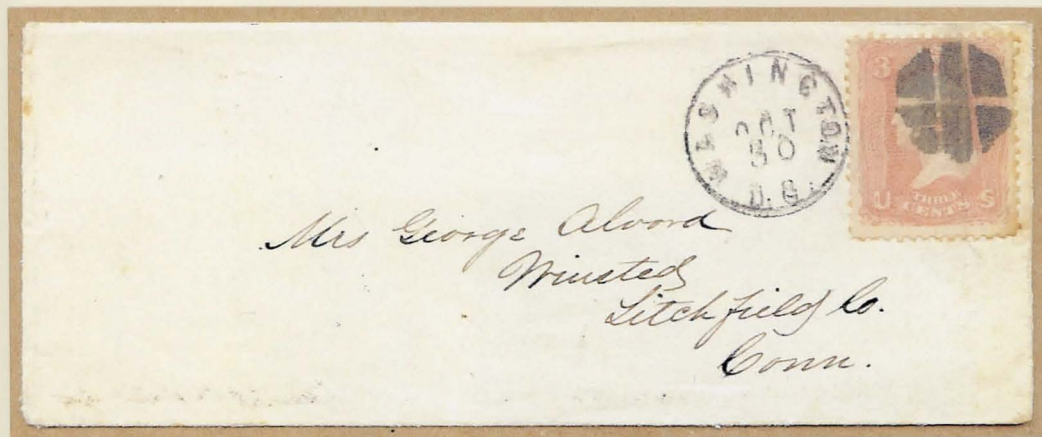 WASHINGTON
OCT
30
D.C.
3
U S
THREE
CENTS
Mrs George Alvord
Winsted
Litchfield Co.
Conn.